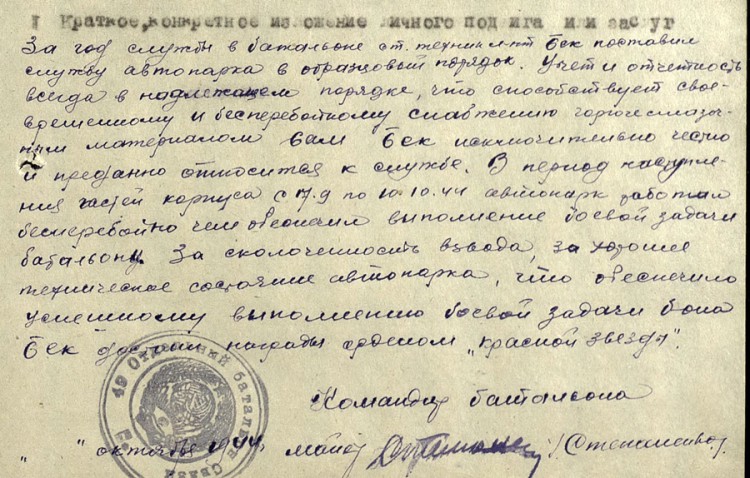 I Краткое, конкретное изложение личного подвига или заслуг
За год службы в батальоне ст. техник л-т Бек поставил
службу автопарка в образцовый порядок. Учет и отчетность
всегда в надлежащем порядке, что способствует свое-
временному и бесперебойному снабжению горючесмазоч-
ным материалом. Сам Бек исключительно честно
и преданно относится к службе. В период наступле-
ния частей корпуса с 17.9 по 10.10.44 автопарк работал
бесперебойно чем обеспечил выполнение боевой задачи
батальону. За сколоченность взвода, за хорошее
техническое состояние автопарка, что обеспечило
успешному выполнению боевой задачи б-она
Бек достоин награды орденом "Красной Звезды".
Командир батальона
" " октябрь 1944 г. майор /Степаненко/
49 Отдельный батальон Связи